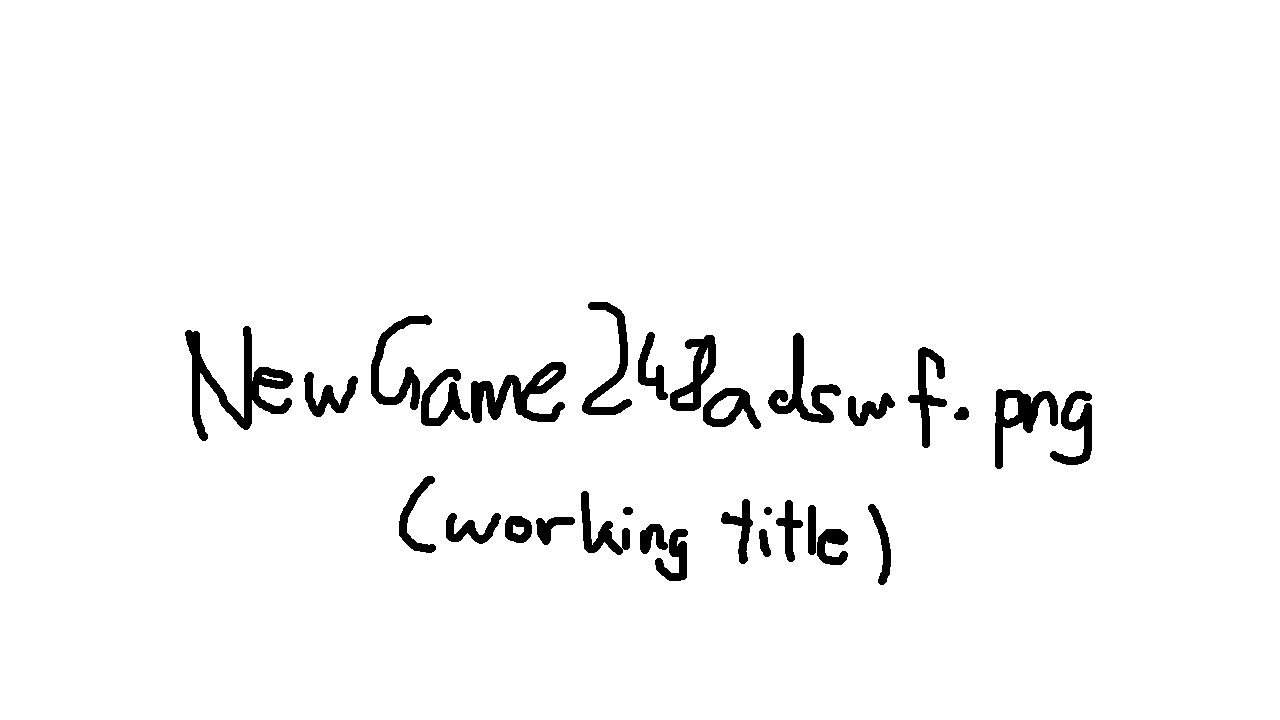 NewGame248adswf.png
(working title)